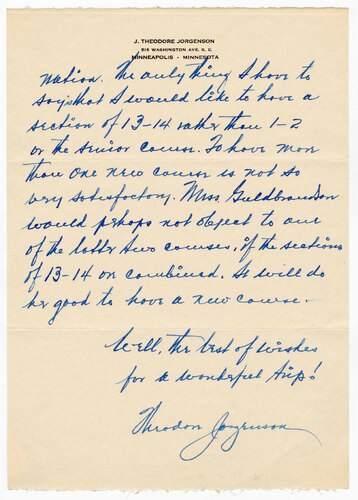 J. THEODORE JORGENSON
515 WASHINGTON AVE. S. E.
MINNEAPOLIS - MINNESOTA
nation. The only thing I have to
say is that I would like to have a
section of 13-14 rather than 1-2
or the senior course. To have more
than one new course is not so
very satisfactory. Miss Guldbrandson
would perhaps not object to one
of the latter two courses, if the sections
of 13-14 are combined. It will do
her good to have a new course.
Well, the best of wishes
for a wonderful trip!
Theodore Jorgenson